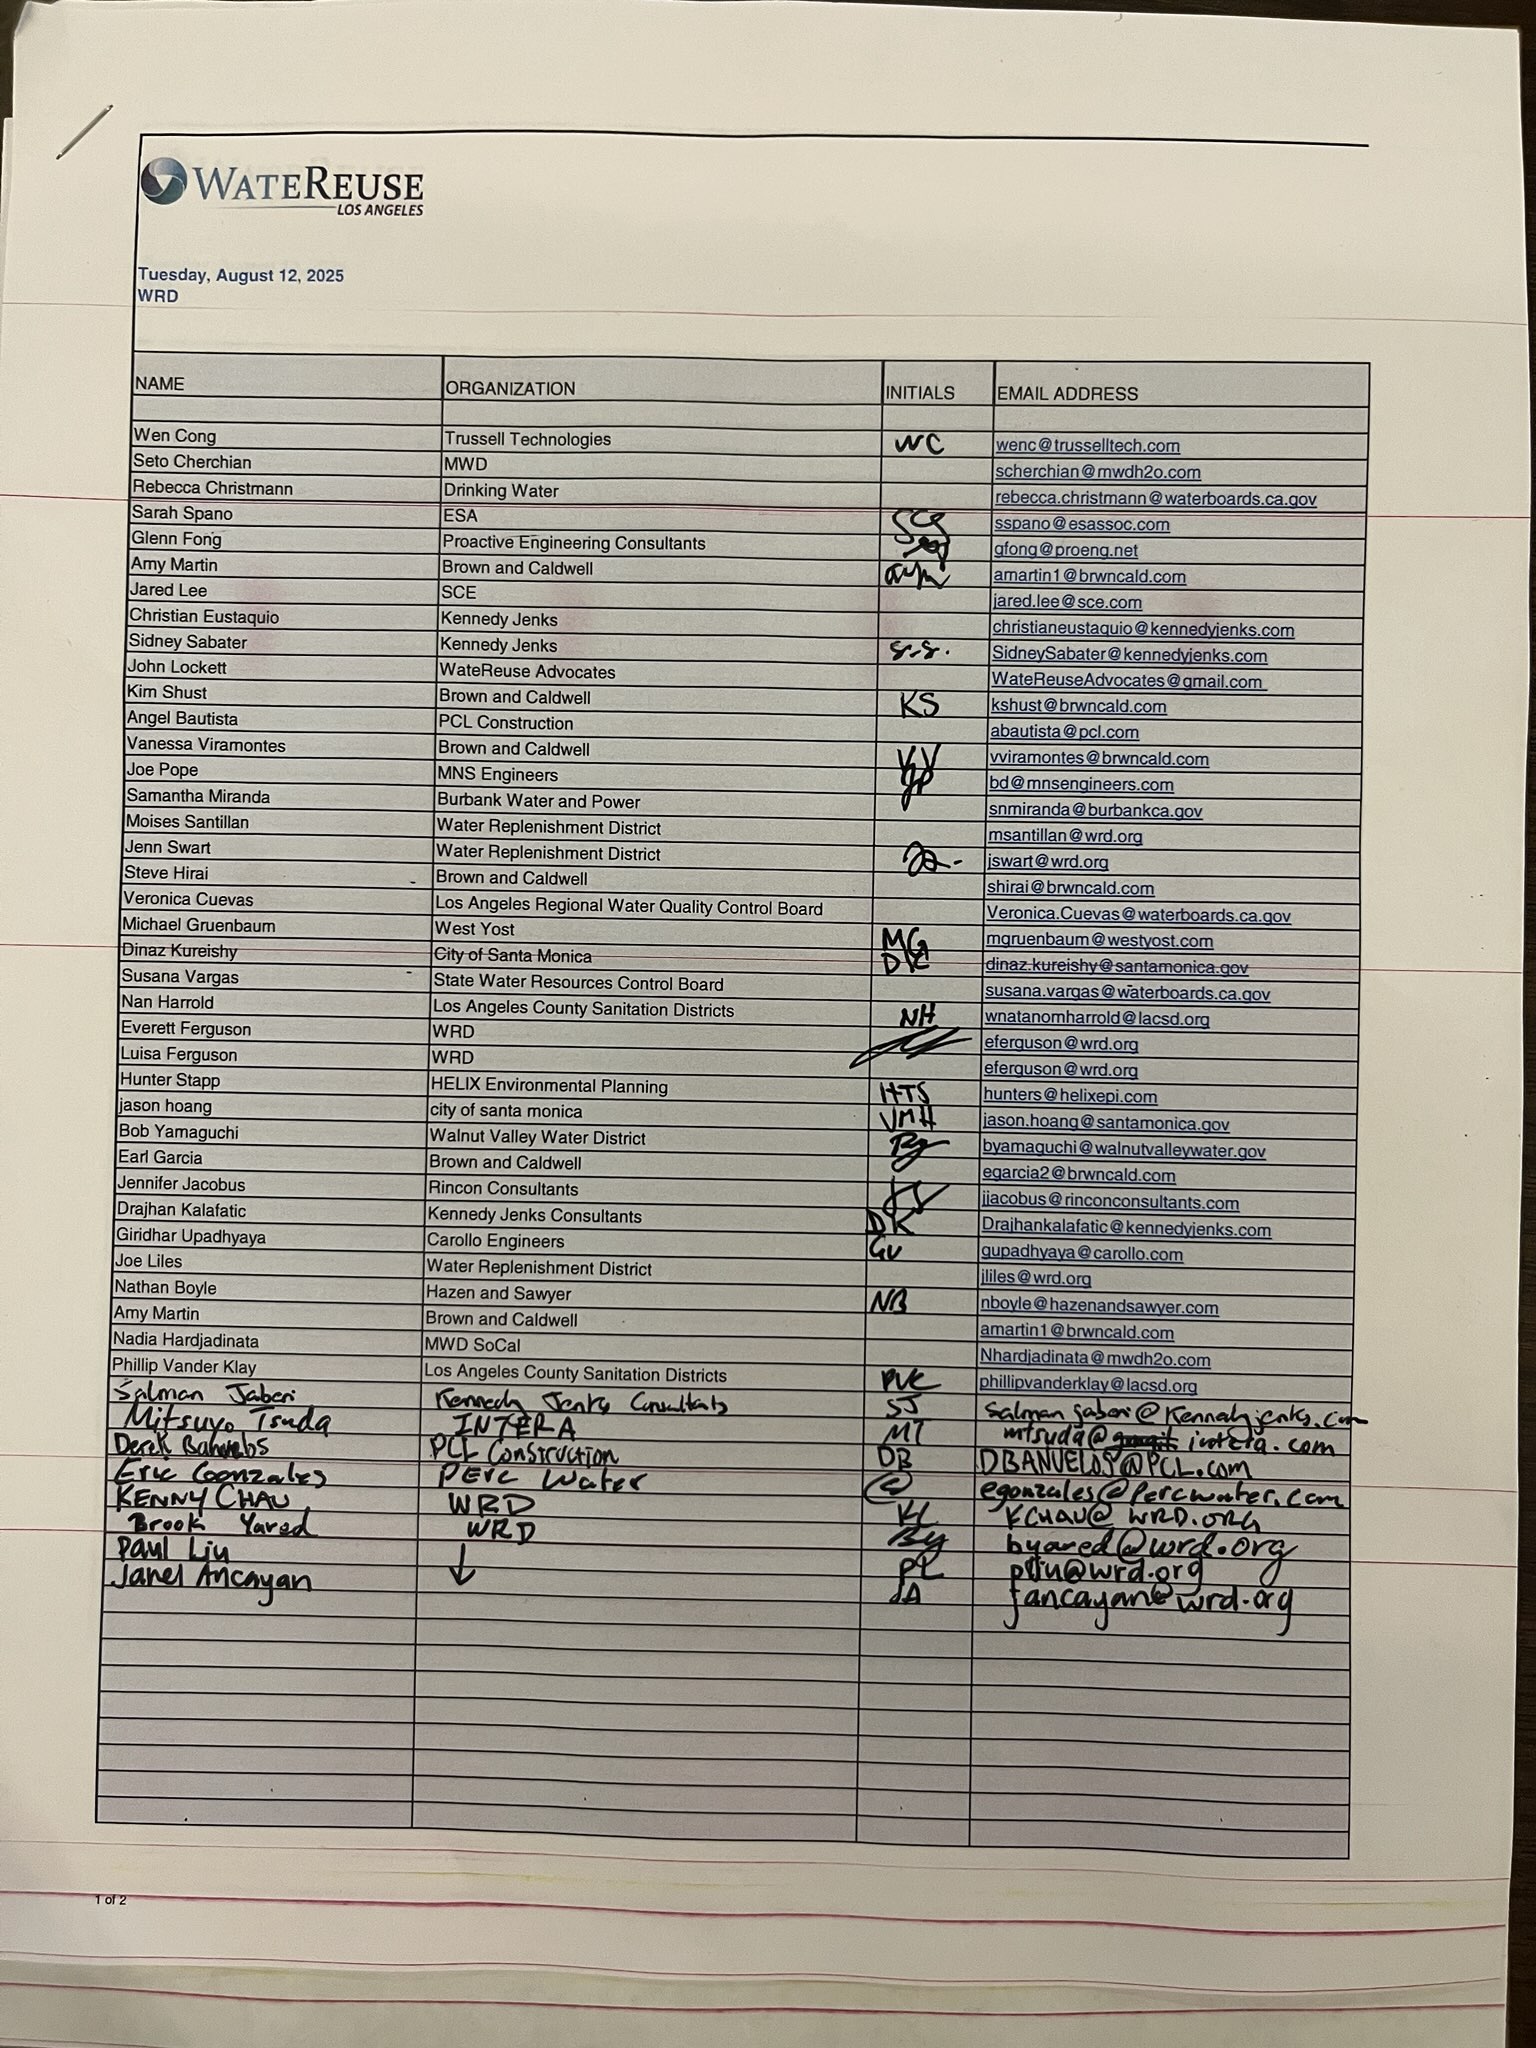 WATEREUSE
LOS ANGELES
Tuesday, August 12, 2025
WRD
NAME ORGANIZATION INITIALS EMAIL ADDRESS
Wen Cong Trussell Technologies WC wenc@trusselltech.com
Seto Cherchian MWD scherchian@mwdh2o.com
Rebecca Christmann Drinking Water rebecca.christmann@waterboards.ca.gov
Sarah Spano ESA SCS sspano@esassoc.com
Glenn Fong Proactive Engineering Consultants gfong@proeng.net
Amy Martin Brown and Caldwell aym amartin1@brwncald.com
Jared Lee SCE jared.lee@sce.com
Christian Eustaquio Kennedy Jenks christianeustaquio@kennedyjenks.com
Sidney Sabater Kennedy Jenks s.s. SidneySabater@kennedyjenks.com
John Lockett WateReuse Advocates WateReuseAdvocates@gmail.com
Kim Shust Brown and Caldwell KS kshust@brwncald.com
Angel Bautista PCL Construction abautista@pcl.com
Vanessa Viramontes Brown and Caldwell VV vviramontes@brwncald.com
Joe Pope MNS Engineers JP bd@mnsengineers.com
Samantha Miranda Burbank Water and Power snmiranda@burbankca.gov
Moises Santillan Water Replenishment District msantillan@wrd.org
Jenn Swart Water Replenishment District jswart@wrd.org
Steve Hirai Brown and Caldwell shirai@brwncald.com
Veronica Cuevas Los Angeles Regional Water Quality Control Board Veronica.Cuevas@waterboards.ca.gov
Michael Gruenbaum West Yost MG mgruenbaum@westyost.com
Dinaz Kureishy City of Santa Monica DK dinaz.kureishy@santamonica.gov
Susana Vargas State Water Resources Control Board susana.vargas@waterboards.ca.gov
Nan Harrold Los Angeles County Sanitation Districts NH wnatanomharrold@lacsd.org
Everett Ferguson WRD eferguson@wrd.org
Luisa Ferguson WRD eferguson@wrd.org
Hunter Stapp HELIX Environmental Planning HTS hunters@helixepi.com
jason hoang city of santa monica JMH jason.hoang@santamonica.gov
Bob Yamaguchi Walnut Valley Water District By byamaguchi@walnutvalleywater.gov
Earl Garcia Brown and Caldwell egarcia2@brwncald.com
Jennifer Jacobus Rincon Consultants jjacobus@rinconconsultants.com
Drajhan Kalafatic Kennedy Jenks Consultants DK Drajhankalafatic@kennedyjenks.com
Giridhar Upadhyaya Carollo Engineers GU gupadhyaya@carollo.com
Joe Liles Water Replenishment District jliles@wrd.org
Nathan Boyle Hazen and Sawyer NB nboyle@hazenandsawyer.com
Amy Martin Brown and Caldwell amartin1@brwncald.com
Nadia Hardjadinata MWD SoCal Nhardjadinata@mwdh2o.com
Phillip Vander Klay Los Angeles County Sanitation Districts PVK phillipvanderklay@lacsd.org
Salman Jaberi Kennedy Jenks Consultants SJ
Mitsuyo Tsuda INTERA MT mtsuda@ intera.com
Derek Banuelos PCL Construction DB DBANUELOS@PCL.com
Eric Gonzales PERC Water egonzales@percwater.com
KENNY CHAU WRD KC KCHAU@WRD.ORG
Brook Yared WRD By byared@wrd.org
Paul Liu ↓ PL pliu@wrd.org
Janel Ancayan JA jancayan@wrd.org
1 of 2